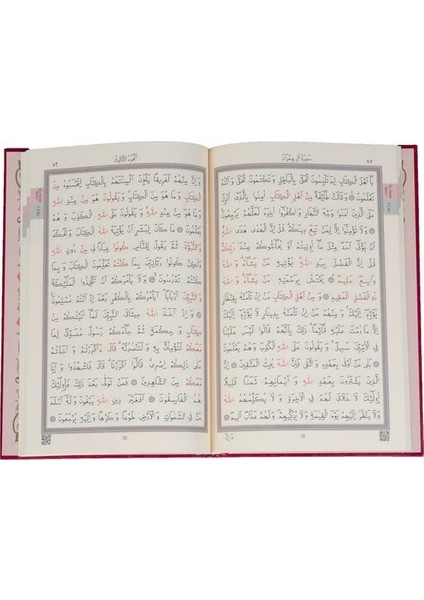 سورة آل عمران
٥٨
يا اهل الكتاب لم تلبسون الحق بالباطل وتكتمون الحق وانتم
تعلمون وقالت طائفة من اهل الكتاب امنوا بالذي
انزل على الذين امنوا وجه النهار واكفروا اخره لعلهم يرجعون
ولا تؤمنوا الا لمن تبع دينكم قل ان الهدى هدى الله
ان يؤتى احد مثل ما اوتيتم او يحاجوكم عند ربكم
قل ان الفضل بيد الله يؤتيه من يشاء والله
واسع عليم يختص برحمته من يشاء والله
ذو الفضل العظيم ومن اهل الكتاب من ان تأمنه بقنطار
يؤده اليك ومنهم من ان تأمنه بدينار لا يؤده
اليك الا ما دمت عليه قائما ذلك بانهم قالوا ليس علينا
في الاميين سبيل ويقولون على الله الكذب وهم يعلمون
بلى من اوفى بعهده واتقى فان الله يحب المتقين ان
الذين يشترون بعهد الله وايمانهم ثمنا قليلا
اولئك لا خلاق لهم في الاخرة ولا يكلمهم الله
ولا ينظر اليهم يوم القيامة ولا يزكيهم ولهم عذاب اليم
الجزء الثالث
٥٩
وان منهم لفريقا يلون السنتهم بالكتاب لتحسبوه من
الكتاب وما هو من الكتاب ويقولون هو من عند الله
وما هو من عند الله ويقولون على الله الكذب وهم
يعلمون ما كان لبشر ان يؤتيه الله الكتاب والحكم
والنبوة ثم يقول للناس كونوا عبادا لي من دون الله
ولكن كونوا ربانيين بما كنتم تعلمون الكتاب وبما
كنتم تدرسون ولا يأمركم ان تتخذوا الملئكة
والنبين اربابا ايأمركم بالكفر بعد اذ انتم مسلمون
واذ اخذ الله ميثاق النبين لما اتيتكم من
كتاب وحكمة ثم جاءكم رسول مصدق لما
معكم لتؤمنن به ولتنصرنه قال ءاقررتم واخذتم
على ذلكم اصري قالوا اقررنا قال فاشهدوا وانا
معكم من الشاهدين فمن تولى بعد ذلك فاولئك
هم الفاسقون افغير دين الله يبغون وله اسلم
من في السموات والارض طوعا وكرها واليه يرجعون